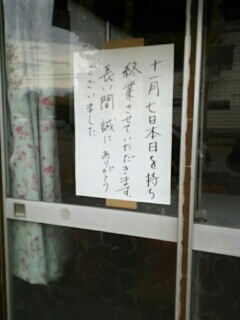 十一月七日本日を持ち
終業させていただきます。
長い間誠にありがとう
ございました